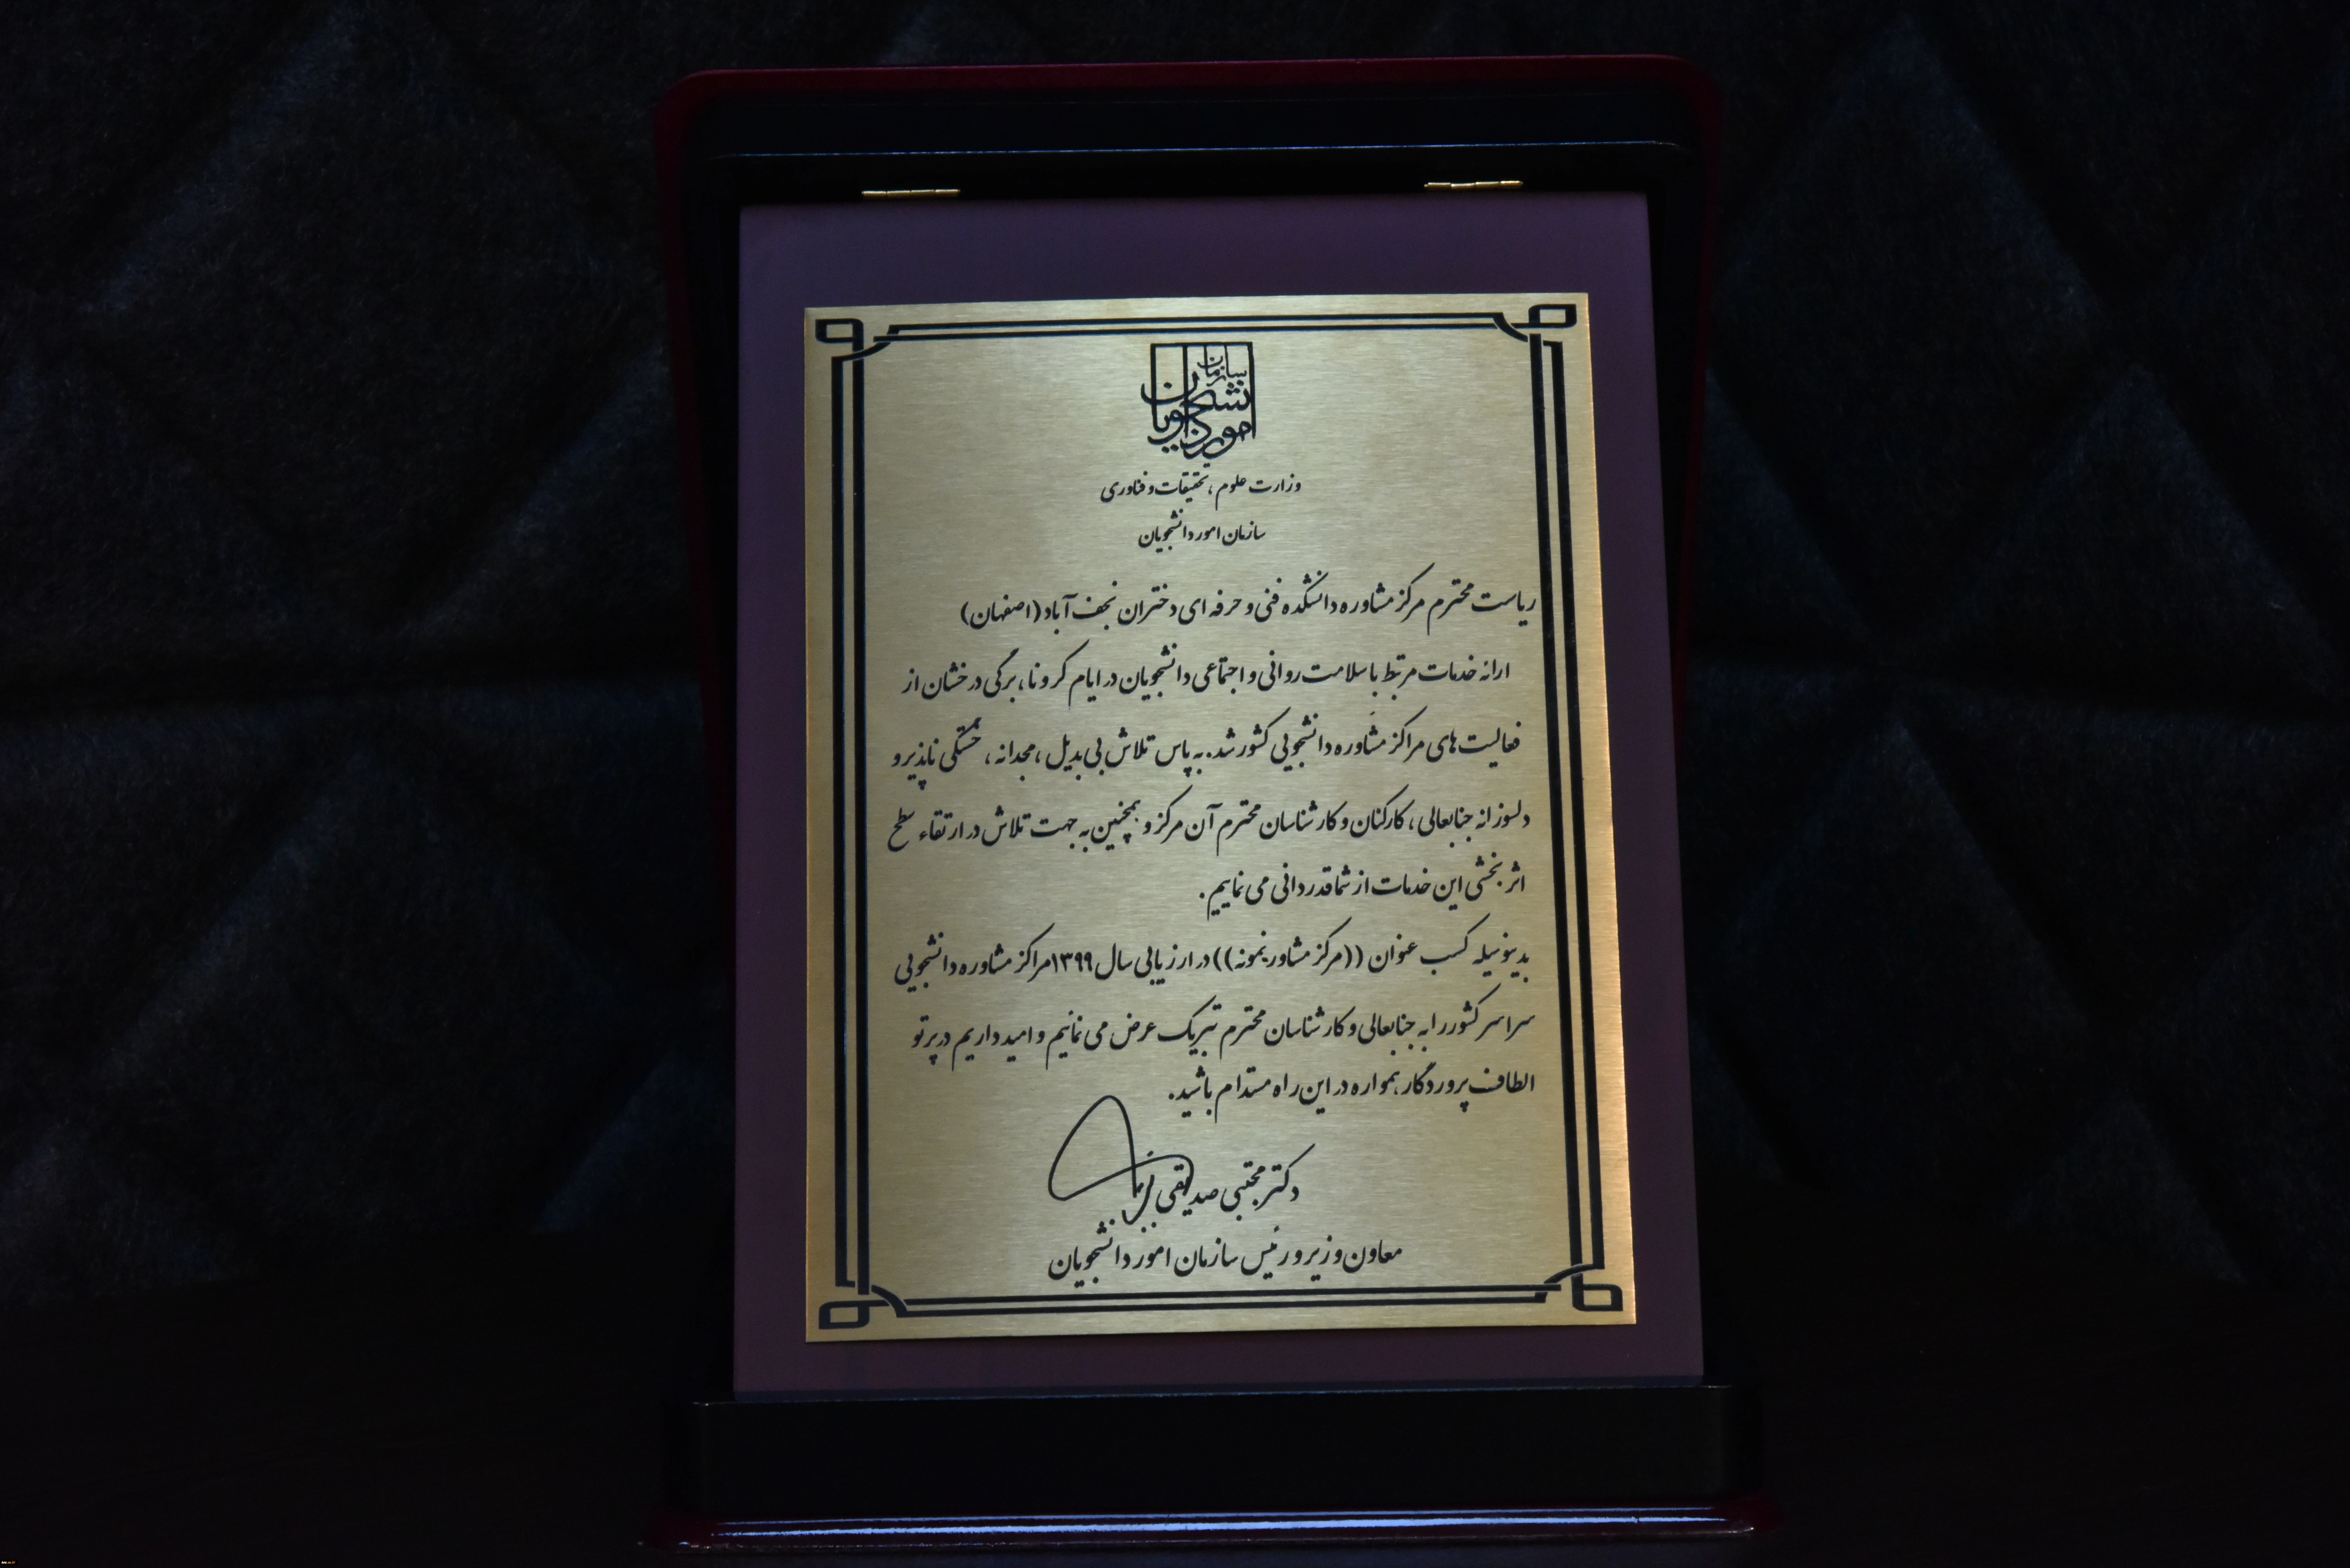 سازمان
امور دانشجویان
وزارت علوم، تحقیقات و فناوری
سازمان امور دانشجویان
ریاست محترم مرکز مشاوره دانشکده فنی و حرفه ای دختران نجف آباد (اصفهان)
ارائه خدمات مرتبط با سلامت روانی و اجتماعی دانشجویان در ایام کرونا، برگی درخشان از
فعالیت های مراکز مشاوره دانشجویی کشور شد. به پاس تلاش بی بدیل، مجدانه، خستگی ناپذیر و
دلسوزانه جنابعالی، کارکنان و کارشناسان محترم آن مرکز و همچنین به جهت تلاش در ارتقاء سطح
اثر بخشی این خدمات از شما قدردانی می نماییم.
بدینوسیله کسب عنوان ((مرکز مشاور نمونه)) در ارزیابی سال ۱۳۹۹ مراکز مشاوره دانشجویی
سراسر کشور را به جنابعالی و کارشناسان محترم تبریک عرض می نمائیم و امید داریم در پرتو
الطاف پروردگار، همواره در این راه مستدام باشید.
دکتر مجتبی صدیقی
معاون وزیر و رئیس سازمان امور دانشجویان